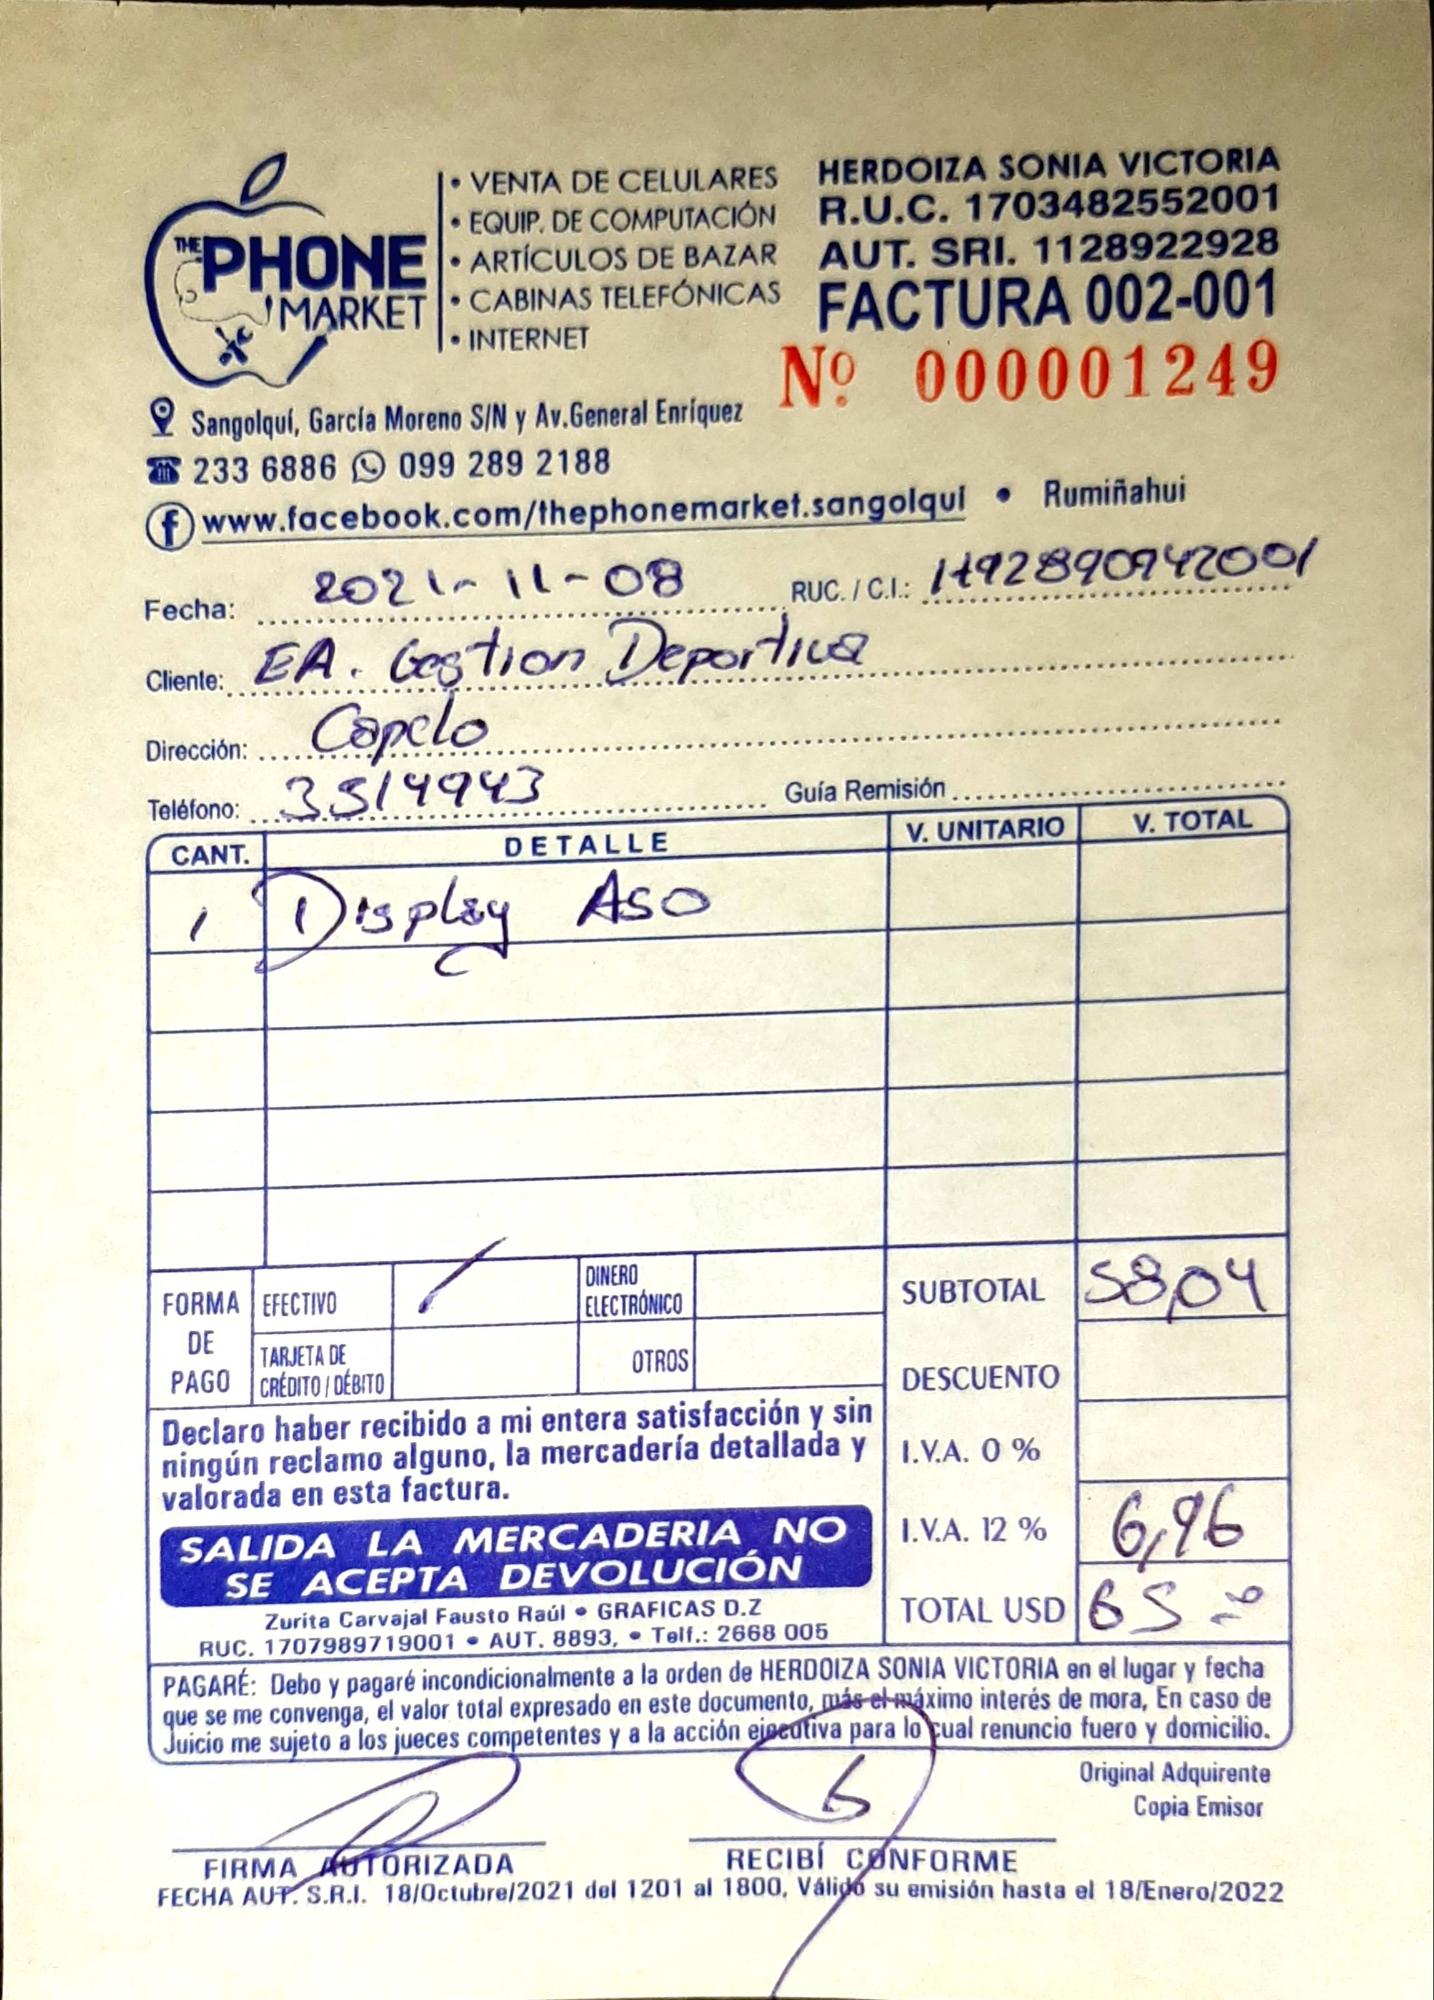 THE PHONE MARKET
• VENTA DE CELULARES
• EQUIP. DE COMPUTACIÓN
• ARTÍCULOS DE BAZAR
• CABINAS TELEFÓNICAS
• INTERNET
HERDOIZA SONIA VICTORIA
R.U.C. 1703482552001
AUT. SRI. 1128922928
FACTURA 002-001
Nº 000001249
Sangolquí, García Moreno S/N y Av.General Enríquez
233 6886 099 289 2188
www.facebook.com/thephonemarket.sangolquí • Rumiñahui
Fecha: 2021-11-08 RUC. / C.I.: 1792890942001
Cliente: EA. Gestion Deportiva
Dirección: Capelo
Teléfono: 3514943 Guía Remisión
CANT. DETALLE V. UNITARIO V. TOTAL
1 Display A50
FORMA DE PAGO
EFECTIVO /
DINERO ELECTRÓNICO
TARJETA DE CRÉDITO / DÉBITO
OTROS
SUBTOTAL 58,04
DESCUENTO
I.V.A. 0 %
I.V.A. 12 % 6,96
TOTAL USD 65
Declaro haber recibido a mi entera satisfacción y sin
ningún reclamo alguno, la mercadería detallada y
valorada en esta factura.
SALIDA LA MERCADERIA NO
SE ACEPTA DEVOLUCIÓN
Zurita Carvajal Fausto Raúl • GRAFICAS D.Z
RUC. 1707989719001 • AUT. 8893, • Telf.: 2668 005
PAGARÉ: Debo y pagaré incondicionalmente a la orden de HERDOIZA SONIA VICTORIA en el lugar y fecha
que se me convenga, el valor total expresado en este documento, más el máximo interés de mora, En caso de
Juicio me sujeto a los jueces competentes y a la acción ejecutiva para lo cual renuncio fuero y domicilio.
Original Adquirente
Copia Emisor
FIRMA AUTORIZADA RECIBÍ CONFORME
FECHA AUT. S.R.I. 18/Octubre/2021 del 1201 al 1800, Válido su emisión hasta el 18/Enero/2022